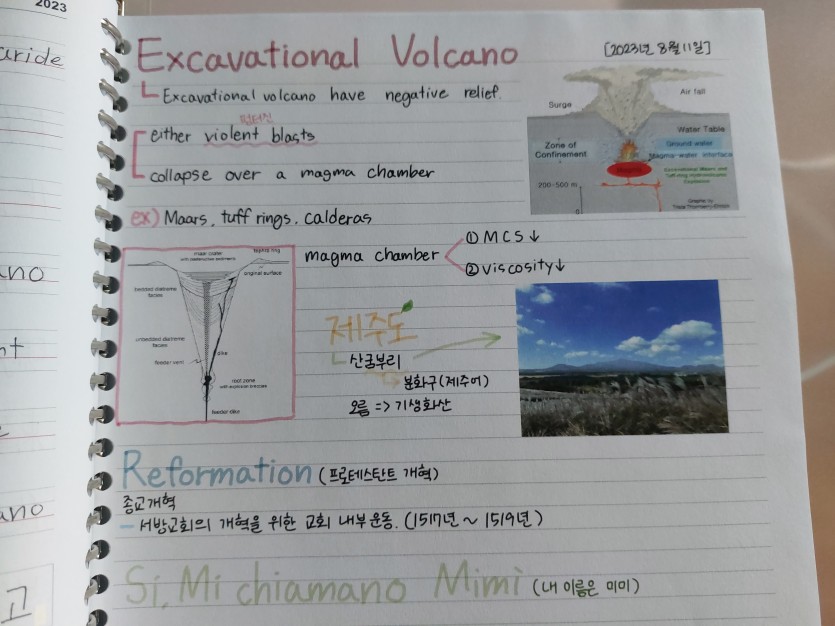 2023
aride
ano
nt
ano
고
Excavational Volcano
[2023년 8월 11일]
Excavational volcano have negative relief.
터진
either violent blasts
collapse over a magma chamber
ex) Maars, tuff rings, calderas
Surge
Air fall
Water Table
Zone of Confinement
Ground water
Magma-water interface
200-500 m
0
magma chamber
① MCS↓
② viscosity↓
maar crater
tephra ring
original surface
bedded diatreme facies
unbedded diatreme facies
feeder vent
dike
root zone
feeder dike
제주도
산굼부리
분화구(제주어)
오름 => 기생화산
Reformation (프로테스탄트 개혁)
종교개혁
- 서방교회의 개혁을 위한 교회 내부운동. (1517년 ~ 1519년)
Sí, Mi chiamano Mimì (내 이름은 미미)